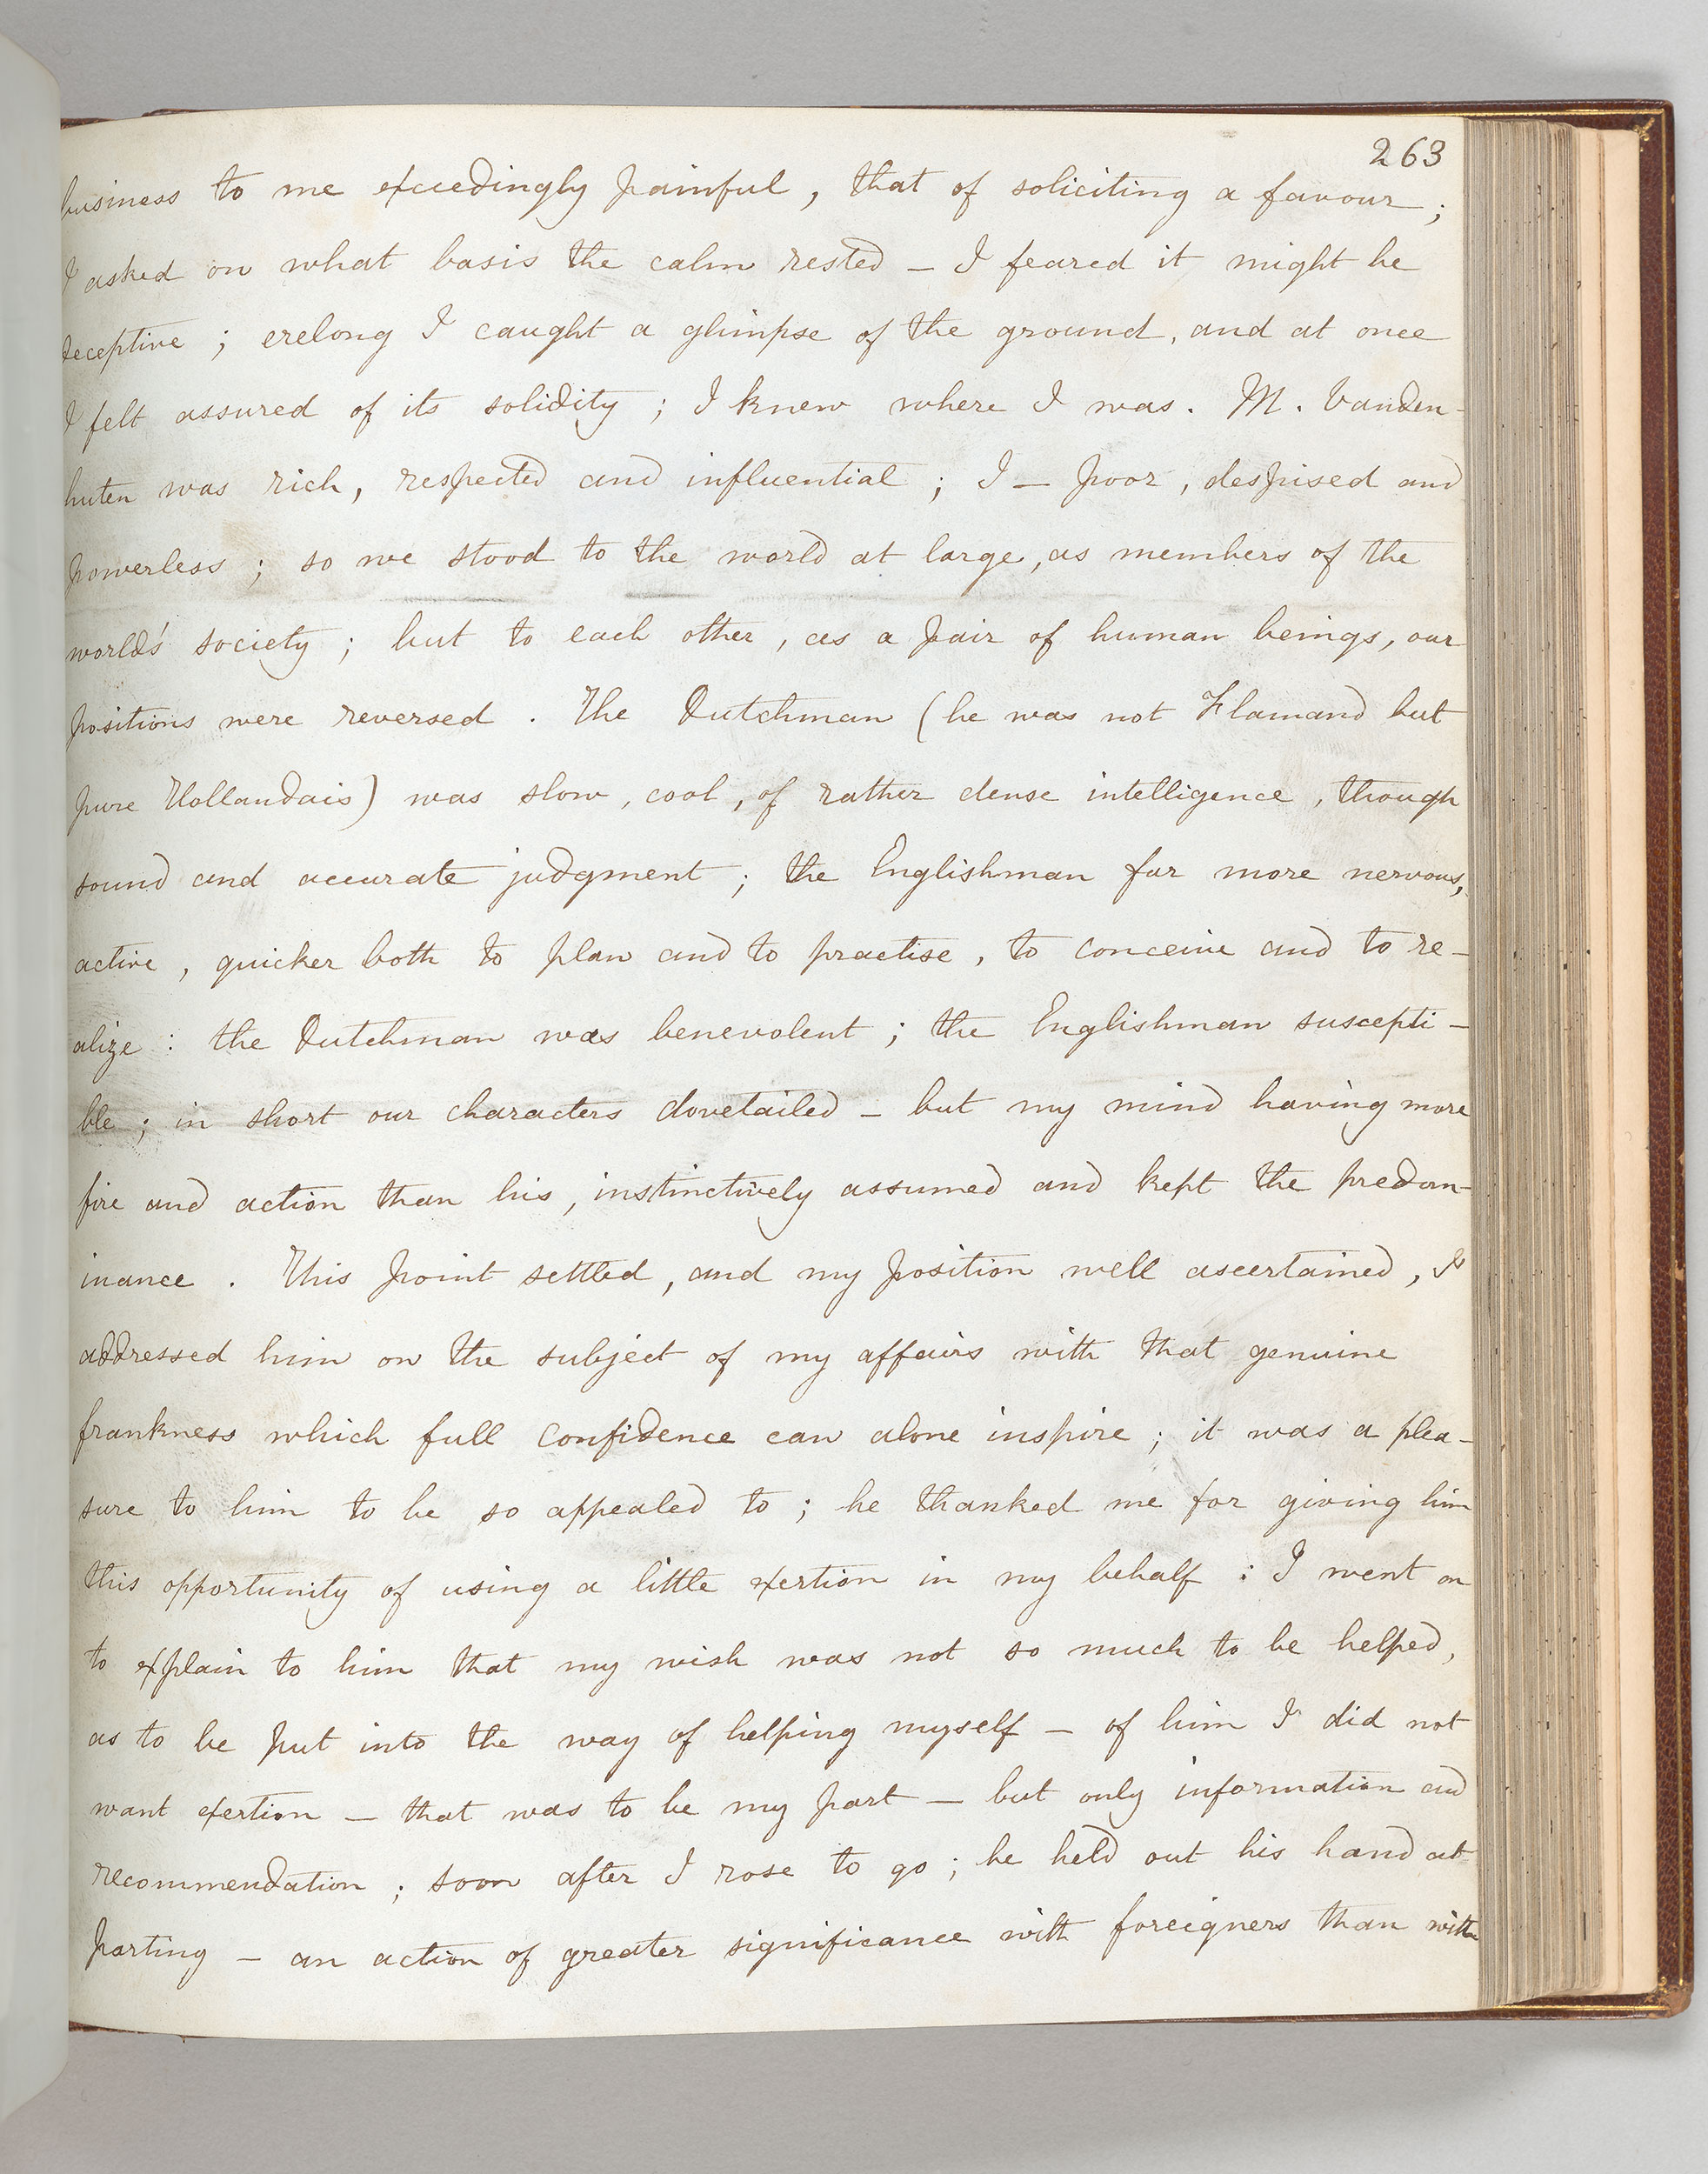 263
business to me exceedingly painful, that of soliciting a favour;
I asked on what basis the calm rested – I feared it might be
deceptive; erelong I caught a glimpse of the ground, and at once
I felt assured of its solidity; I knew where I was. M. Vanden-
huten was rich, respected and influential; I – poor, despised and
powerless; so we stood to the world at large, as members of the
world's society; but to each other, as a pair of human beings, our
positions were reversed. The Dutchman (he was not Flamand but
pure Hollandais) was slow, cool, of rather dense intelligence, though
sound and accurate judgment; the Englishman far more nervous,
active, quicker both to plan and to practise, to conceive and to re-
alize: the Dutchman was benevolent; the Englishman suscepti-
ble; in short our characters dovetailed – but my mind having more
fire and action than his, instinctively assumed and kept the predom-
inance. This point settled, and my position well ascertained, I
addressed him on the subject of my affairs with that genuine
frankness which full confidence can alone inspire; it was a plea-
sure to him to be so appealed to; he thanked me for giving him
this opportunity of using a little exertion in my behalf: I went on
to explain to him that my wish was not so much to be helped,
as to be put into the way of helping myself – of him I did not
want exertion – that was to be my part – but only information and
recommendation; soon after I rose to go; he held out his hand at
parting – an action of greater significance with foreigners than with